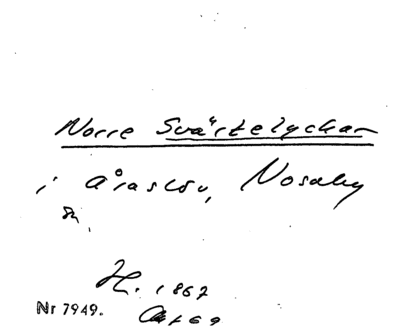 Norre Svärtelyckan
i Åraslöv, Nosaby
sn.
H. 1867
Nr 7949.